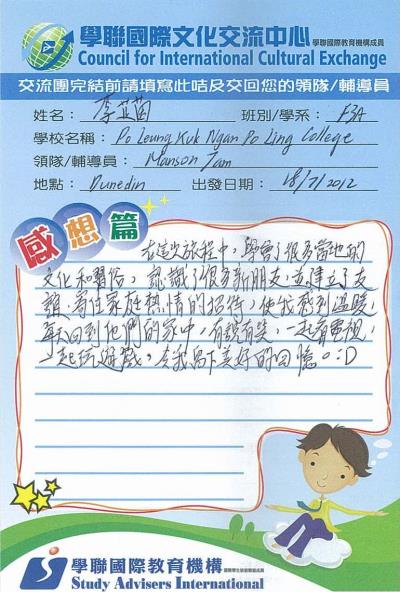 學聯國際文化交流中心 學聯國際教育機構成員
Council for International Cultural Exchange
交流團完結前請填寫此咭及交回您的領隊/輔導員
姓名： 李芷茵 班別/學系： F3A
學校名稱： Po Leung Kuk Ngan Po Ling College
領隊/輔導員： Manson Tam
地點： Dunedin 出發日期： 18/7/2012
感想篇
在這次旅程中，學會了很多當地的
文化和習俗，認識了很多新朋友，並建立了友
誼。寄住家庭熱情的招待，使我感到溫暖，
每天回到他們的家中，有說有笑，一起看電視，
一起玩遊戲，令我留下美好的回憶。:D
學聯國際教育機構
Study Advisers International